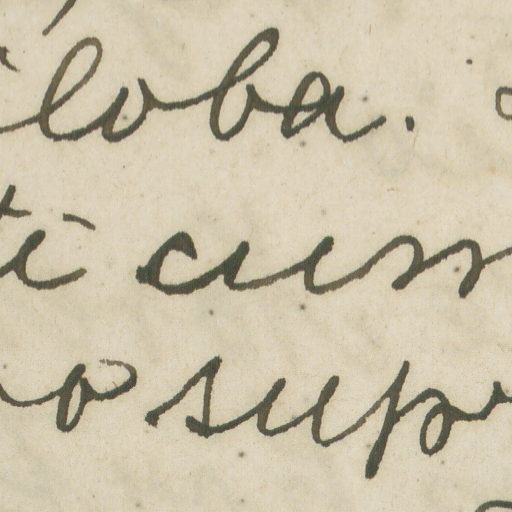 iloba.
ti cum
no sup